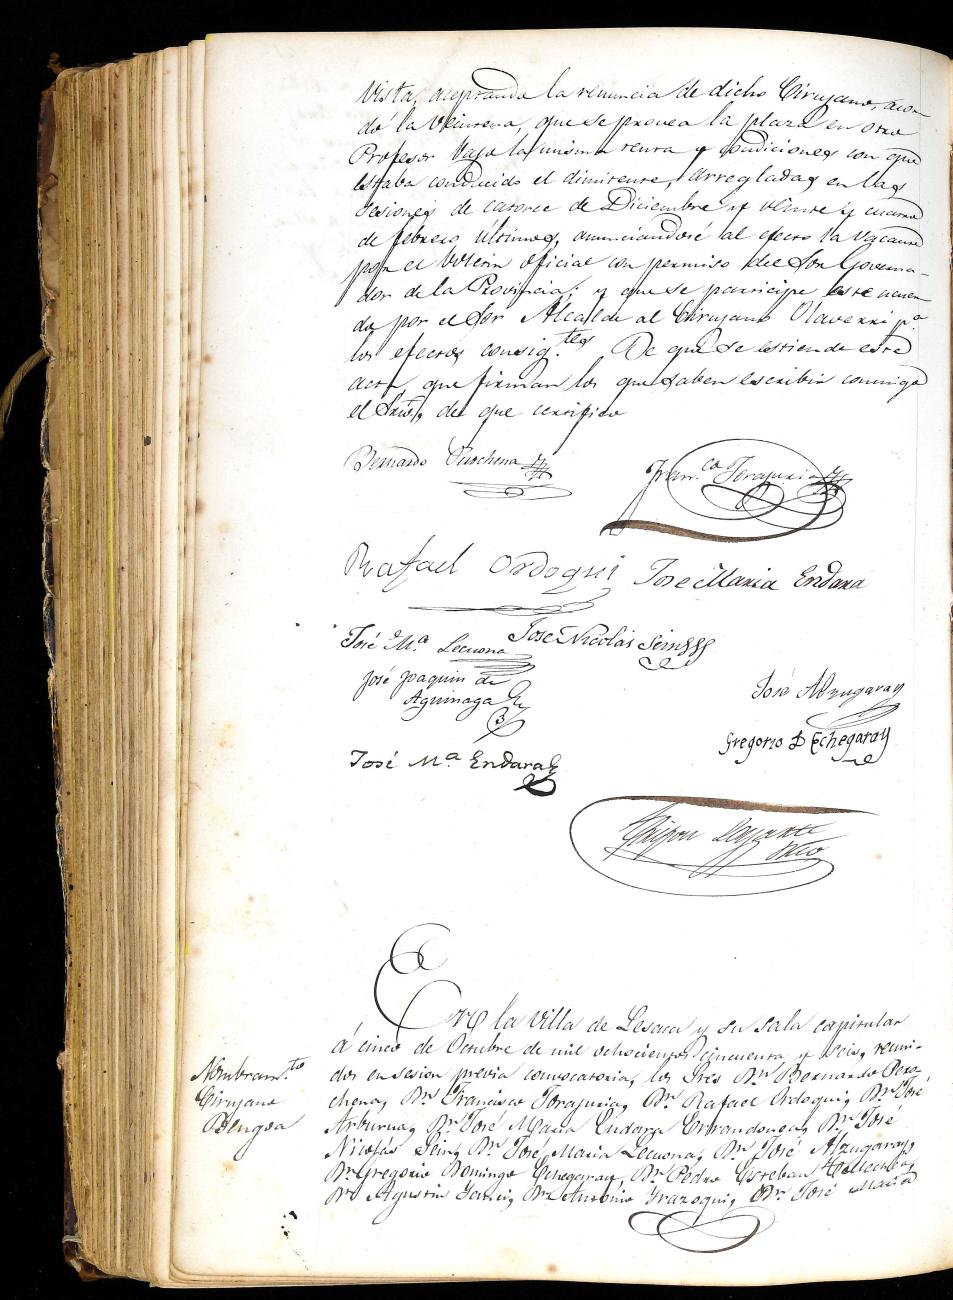 Vista, aceptando la renuncia de dicho Cirujano, acor-
dó la Veintena, que se provea la plaza en otro
Profesor bajo la misma renta y condiciones con que
estaba conducido el dimitente, arregladas en las
sesiones de catorce de Diciembre y veinte y cuatro
de febrero últimos, anunciandose al efecto la vacante
por el boletin oficial con permiso del Sor Governa-
dor de la Provincia; y que se participe este acuer
do por el Sor Alcalde al Cirujano Olaverri p.ª
los efectos consig.tes De que se estiende este
acta, que firman los que saben escribir conmigo
el Srio, de que certifico
Bernardo Perochena
Fran.co Torajuria
Rafael Ordoqui José Maria Endara
José M.ª Lecuona José Nicolás Sein
José Joaquin de
Aguinaga
José Alzugaray
Gregorio D Echegaray
José Mª Endara
Layante
Srio
En la Villa de Lesaca y su sala capitular
á cinco de Octubre de mil ochocientos cincuenta y seis, reuni-
dos en sesion previa convocatoria, los Sres Dn Bernardo Pero-
chena, Dn Francisco Torajuria, Dn Rafael Ordoqui, Dn José
Arburua, Dn José Maria Endara Errandonea, Dn José
Nicolás Sein, Dn José Maria Lecuona, Dn José Alzugaray,
Dn Gregorio Domingo Echegaray, Dn Pedro Esteban
Dn Agustin Dn Antonio Yrazoqui, Dn José Maria
Nombram.to
Cirujano
Bengoa